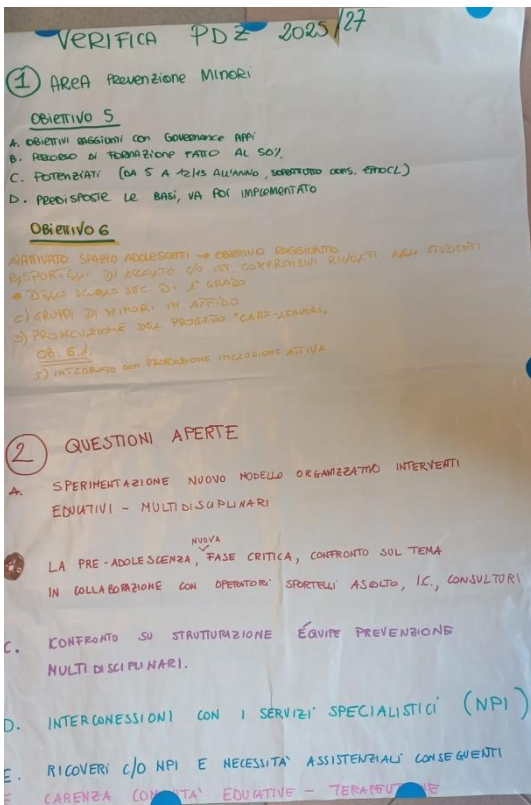 VERIFICA PDZ 2025/27
1 AREA PREVENZIONE MINORI
OBIETTIVO 5
A. OBIETTIVI RAGGIUNTI CON GOVERNANCE APPI
B. PERCORSO DI FORMAZIONE FATTO AL 50%.
C. POTENZIATI (DA 5 A 12/13 ALL'ANNO, SOPRATTUTTO CONS. EMOCL)
D. PREDISPOSTE LE BASI, VA POI IMPLEMENTATO
OBIETTIVO 6
A) ATTIVATO SPAZIO ADOLESCENTI → OBIETTIVO RAGGIUNTO
B) SPORTELLI DI ASCOLTO C/O IST. COMPRENSIVI RIVOLTI AGLI STUDENTI
DELLE SCUOLE SEC. DI 1° GRADO
C) GRUPPI DI MINORI IN AFFIDO
D) PROSECUZIONE DEL PROGETTO "CARE-LEAVERS"
OB. 6.1.
INTEGRATO CON PROGRESSIONE INCLUSIONE ATTIVA
2 QUESTIONI APERTE
A. SPERIMENTAZIONE NUOVO MODELLO ORGANIZZATIVO INTERVENTI
EDUCATIVI - MULTIDISCIPLINARI
LA PRE-ADOLESCENZA, NUOVA FASE CRITICA, CONFRONTO SUL TEMA
IN COLLABORAZIONE CON OPERATORI SPORTELLI ASCOLTO, I.C., CONSULTORI
C. CONFRONTO SU STRUTTURAZIONE ÉQUIPE PREVENZIONE
MULTIDISCIPLINARI.
D. INTERCONESSIONI CON I SERVIZI SPECIALISTICI (NPI)
E. RICOVERI C/O NPI E NECESSITA' ASSISTENZIALI CONSEGUENTI
CARENZA COMUNITA' EDUCATIVE - TERAPEUTICHE